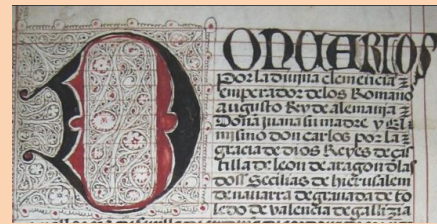 DON CARLOS
por la divina clemencia z
emperador de los Romano
augusto Rey de alemania z
Doña juana su madre y el
mismo don carlos por la
gracia de dios Reyes de cas
tilla de leon de aragon de las
dos Secilias de hierusalem
de navarra de granada de to
ledo de valencia de galizia